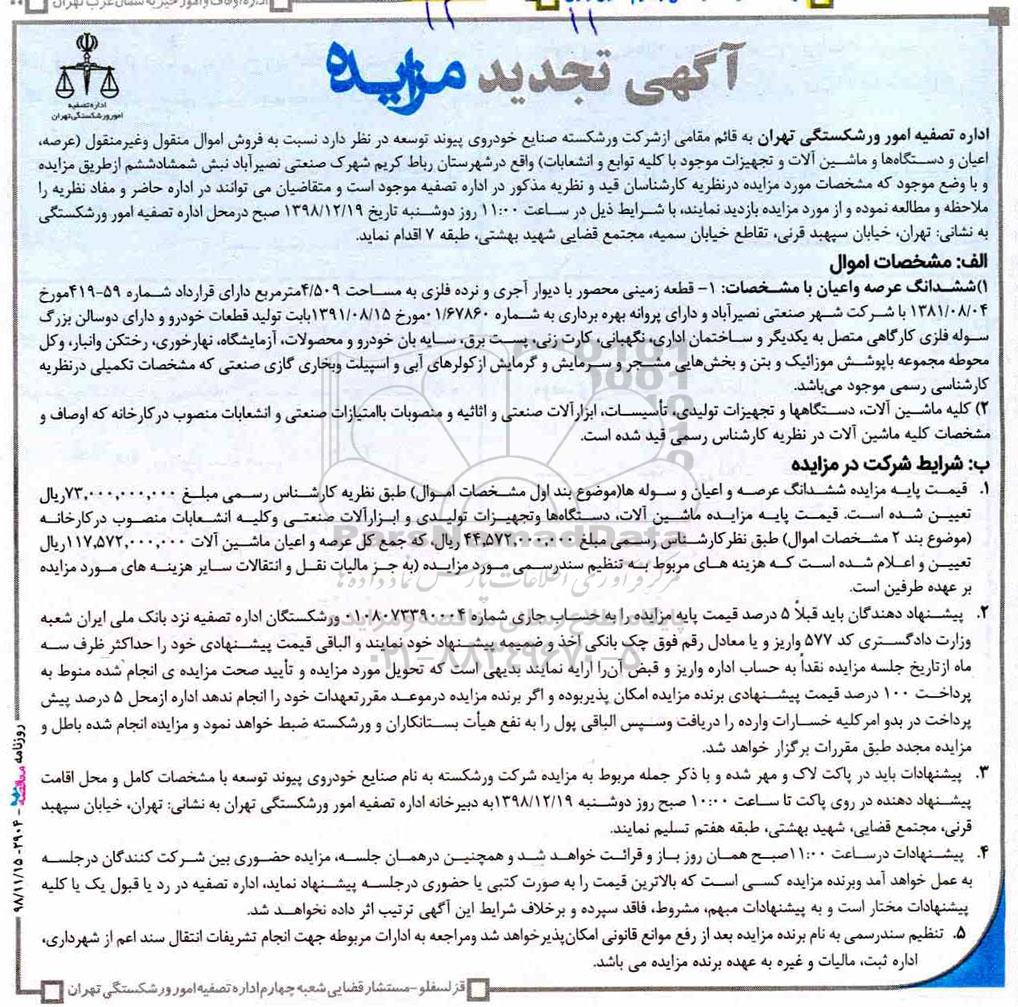 اداره اوقاف و امور خیریه شمال غرب تهران
آگهی تجدید مزایده
اداره تصفیه
امور ورشکستگی تهران
اداره تصفیه امور ورشکستگی تهران به قائم مقامی ازشرکت ورشکسته صنایع خودروی پیوند توسعه در نظر دارد نسبت به فروش اموال منقول وغیرمنقول (عرصه،
اعیان و دستگاه‌ها و ماشین آلات و تجهیزات موجود با کلیه توابع و انشعابات) واقع درشهرستان رباط کریم شهرک صنعتی نصیرآباد نبش شمشادششم ازطریق مزایده
و با وضع موجود که مشخصات مورد مزایده درنظریه کارشناسان قید و نظریه مذکور در اداره تصفیه موجود است و متقاضیان می توانند در اداره حاضر و مفاد نظریه را
ملاحظه و مطالعه نموده و از مورد مزایده بازدید نمایند، با شرایط ذیل در ساعت ۱۱:۰۰ روز دوشنبه تاریخ ۱۳۹۸/۱۲/۱۹ صبح درمحل اداره تصفیه امور ورشکستگی
به نشانی: تهران، خیابان سپهبد قرنی، تقاطع خیابان سمیه، مجتمع قضایی شهید بهشتی، طبقه ۷ اقدام نماید.
الف: مشخصات اموال
۱)ششدانگ عرصه واعیان با مشخصات: ۱- قطعه زمینی محصور با دیوار آجری و نرده فلزی به مساحت ۴/۵۰۹مترمربع دارای قرارداد شماره ۵۹-۴۱۹مورخ
۱۳۸۱/۰۸/۰۴ با شرکت شهر صنعتی نصیرآباد و دارای پروانه بهره برداری به شماره ۰۱/۶۷۸۶۰مورخ ۱۳۹۱/۰۸/۱۵بابت تولید قطعات خودرو و دارای دوسالن بزرگ
سوله فلزی کارگاهی متصل به یکدیگر و ساختمان اداری، نگهبانی، کارت زنی، پست برق، سایه بان خودرو و محصولات، آزمایشگاه، نهارخوری، رختکن وانبار، وکل
محوطه مجموعه باپوشش موزائیک و بتن و بخش‌هایی مشجر و سرمایش و گرمایش ازکولرهای آبی و اسپیلت وبخاری گازی صنعتی که مشخصات تکمیلی درنظریه
کارشناسی رسمی موجود می‌باشد.
۲) کلیه ماشین آلات، دستگاهها و تجهیزات تولیدی، تأسیسات، ابزارآلات صنعتی و اثاثیه و منصوبات باامتیازات صنعتی و انشعابات منصوب درکارخانه که اوصاف و
مشخصات کلیه ماشین آلات در نظریه کارشناس رسمی قید شده است.
ب: شرایط شرکت در مزایده
۱. قیمت پایه مزایده ششدانگ عرصه و اعیان و سوله ها(موضوع بند اول مشخصات اموال) طبق نظریه کارشناس رسمی مبلغ ۷۳,۰۰۰,۰۰۰,۰۰۰ریال
تعیین شده است. قیمت پایه مزایده ماشین آلات، دستگاه‌ها وتجهیزات تولیدی و ابزارآلات صنعتی وکلیه انشعابات منصوب درکارخانه
(موضوع بند ۲ مشخصات اموال) طبق نظرکارشناس رسمی مبلغ ۴۴,۵۷۲,۰۰۰,۰۰۰ ریال، که جمع کل عرصه و اعیان ماشین آلات ۱۱۷,۵۷۲,۰۰۰,۰۰۰ریال
تعیین و اعلام شده است که هزینه های مربوط به تنظیم سندرسمی مورد مزایده (به جز مالیات نقل و انتقالات سایر هزینه های مورد مزایده
بر عهده طرفین است.
۲. پیشنهاد دهندگان باید قبلاً ۵ درصد قیمت پایه مزایده را به حساب جاری شماره ۰۱۰۸۰۷۳۳۹۰۰۰۴ ورشکستگان اداره تصفیه نزد بانک ملی ایران شعبه
وزارت دادگستری کد ۵۷۷ واریز و یا معادل رقم فوق چک بانکی اخذ و ضمیمه پیشنهاد خود نمایند و الباقی قیمت پیشنهادی خود را حداکثر ظرف سه
ماه ازتاریخ جلسه مزایده نقداً به حساب اداره واریز و قبض آن‌را ارایه نمایند بدیهی است که تحویل مورد مزایده و تأیید صحت مزایده ی انجام شده منوط به
پرداخت ۱۰۰ درصد قیمت پیشنهادی برنده مزایده امکان پذیربوده و اگر برنده مزایده درموعد مقررتعهدات خود را انجام ندهد اداره ازمحل ۵ درصد پیش
پرداخت در بدو امرکلیه خسارات وارده را دریافت وسپس الباقی پول را به نفع هیأت بستانکاران و ورشکسته ضبط خواهد نمود و مزایده انجام شده باطل و
مزایده مجدد طبق مقررات برگزار خواهد شد.
۳. پیشنهادات باید در پاکت لاک و مهر شده و با ذکر جمله مربوط به مزایده شرکت ورشکسته به نام صنایع خودروی پیوند توسعه با مشخصات کامل و محل اقامت
پیشنهاد دهنده در روی پاکت تا ساعت ۱۰:۰۰ صبح روز دوشنبه ۱۳۹۸/۱۲/۱۹به دبیرخانه اداره تصفیه امور ورشکستگی تهران به نشانی: تهران، خیابان سپهبد
قرنی، مجتمع قضایی، شهید بهشتی، طبقه هفتم تسلیم نمایند.
۴. پیشنهادات درساعت ۱۱:۰۰صبح همان روز باز و قرائت خواهد شد و همچنین درهمان جلسه، مزایده حضوری بین شرکت کنندگان درجلسه
به عمل خواهد آمد وبرنده مزایده کسی است که بالاترین قیمت را به صورت کتبی یا حضوری درجلسه پیشنهاد نماید، اداره تصفیه در رد یا قبول یک یا کلیه
پیشنهادات مختار است و به پیشنهادات مبهم، مشروط، فاقد سپرده و برخلاف شرایط این آگهی ترتیب اثر داده نخواهد شد.
۵. تنظیم سندرسمی به نام برنده مزایده بعد از رفع موانع قانونی امکان‌پذیرخواهد شد ومراجعه به ادارات مربوطه جهت انجام تشریفات انتقال سند اعم از شهرداری،
اداره ثبت، مالیات و غیره به عهده برنده مزایده می باشد.
قزلسفلو-مستشار قضایی شعبه چهارم اداره تصفیه امور ورشکستگی تهران
روزنامه - ۲۹۰۴-۹۸/۱۱/۱۵
ParsNamadData
۰۲۱-۸۸۳۴۹۶۷۰-۵